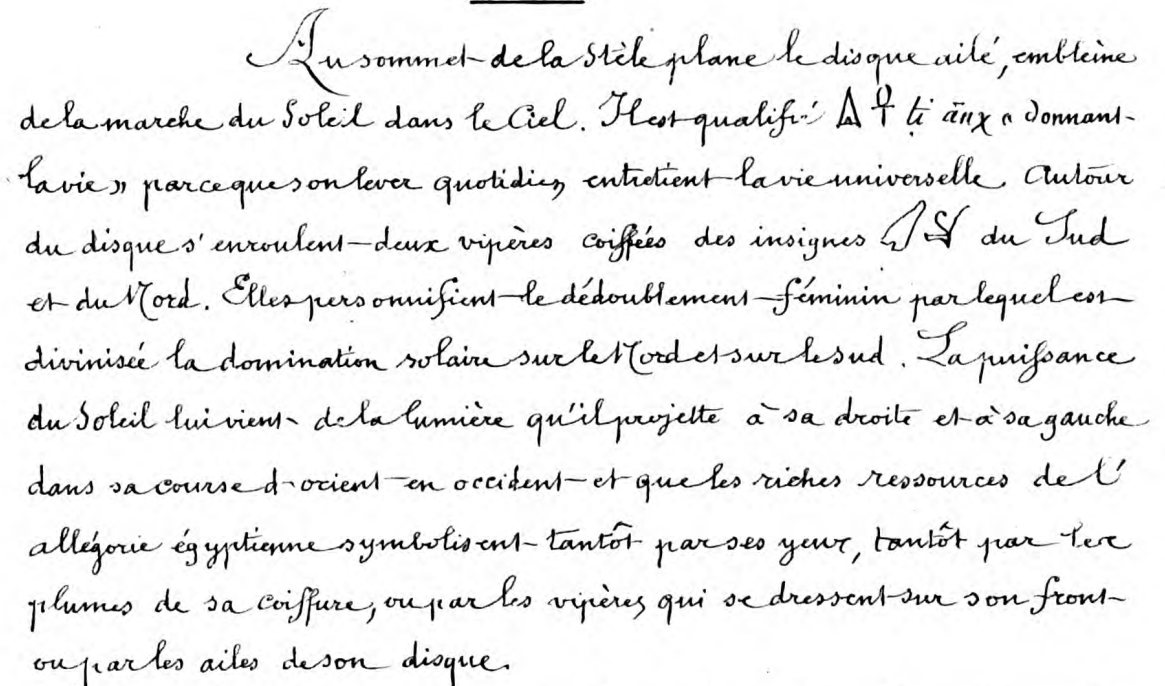 Au sommet de la Stèle plane le disque ailé, emblème
de la marche du Soleil dans le Ciel. Il est qualifié 𓏙 𓋹 ti ānχ « donnant
la vie » parce que son lever quotidien entretient la vie universelle. Autour
du disque s'enroulent deux vipères coiffées des insignes 𓋑 𓋔 du Sud
et du Nord. Elles personnifient le dédoublement féminin par lequel est
divinisée la domination solaire sur le Nord et sur le sud. La puissance
du Soleil lui vient de la lumière qu'il projette à sa droite et à sa gauche
dans sa course d'orient en occident et que les riches ressources de l'
allégorie égyptienne symbolisent tantôt par ses yeux, tantôt par les
plumes de sa coiffure, ou par les vipères qui se dressent sur son front
ou par les ailes de son disque.